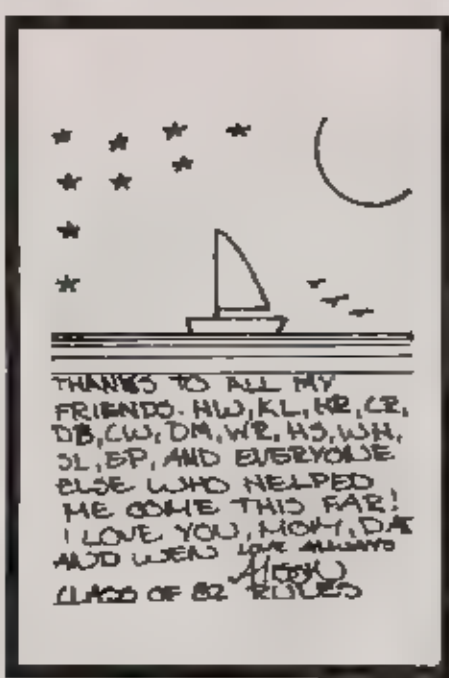 THANKS TO ALL MY
FRIENDS. HW, KL, KR, CR,
DB, CW, DM, WR, HS, WH,
SL, BP, AND EVERYONE
ELSE WHO HELPED
ME COME THIS FAR!
I LOVE YOU, MOM, DAE
AND WEN LOVE ALWAYS
CLASS OF 82 RULES